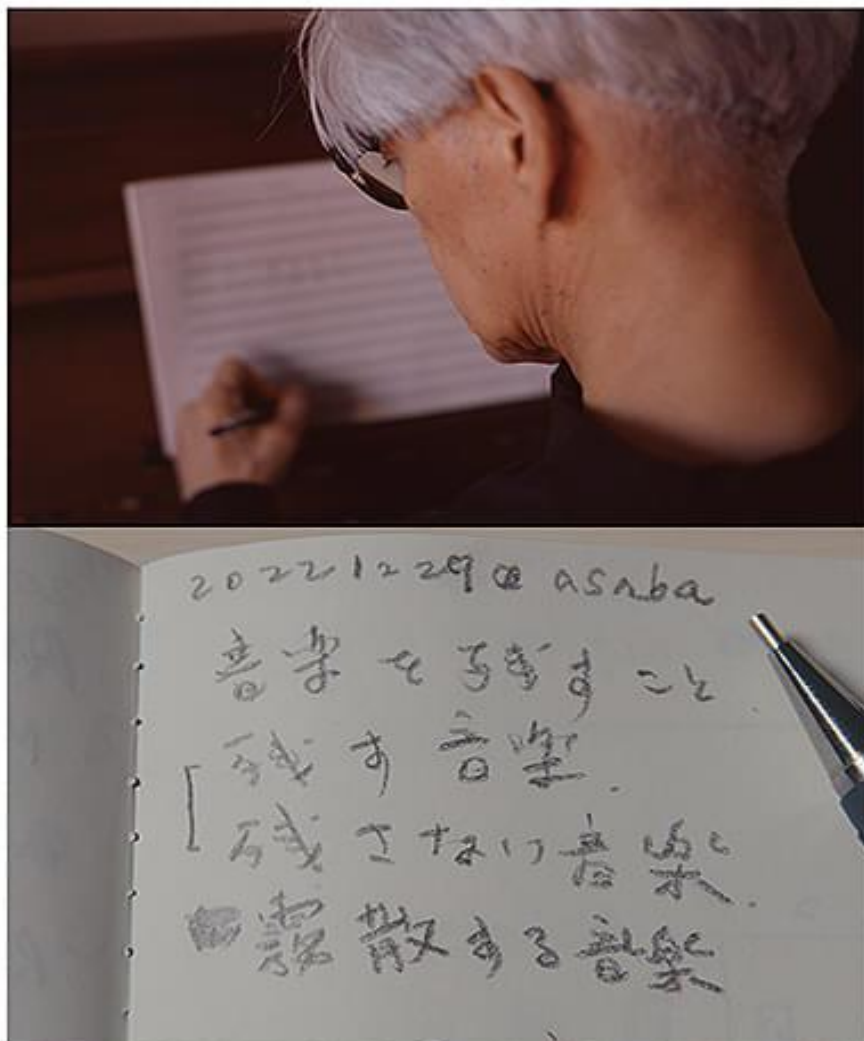 20221229@ asaba
音楽を残すこと
残す音楽.
残さない音楽.
霧散する音楽